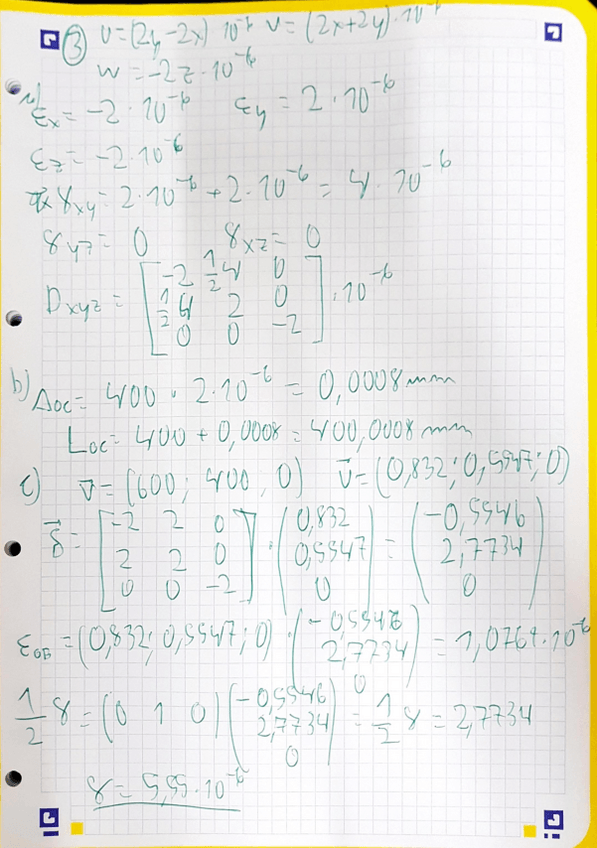 ③ u=(2y-2x) 10⁻⁶ v=(2x+2y)·10⁻⁶
w=-2z·10⁻⁶
a) εx=-2·10⁻⁶ εy=2·10⁻⁶
εz=-2·10⁻⁶
γxy=2·10⁻⁶+2·10⁻⁶=4·10⁻⁶
γyz=0 γxz=0
Dxyz= [-2 ½4 0
½4 2 0
0 0 -2]·10⁻⁶
b) Δoc=400·2·10⁻⁶=0,0008mm
Loc=400+0,0008=400,0008mm
c) v̄=(600; 400, 0) ū=(0,832; 0,5547; 0)
δ= [-2 2 0
2 2 0
0 0 -2]·(0,832
0,5547
0)=(-0,5546
2,7734
0)
εOB=(0,832; 0,5547; 0)·(-0,5546
2,7734
0)=1,0767·10⁻⁶
½γ=(0 1 0)(-0,5546
2,7734
0)=½γ=2,7734
γ=5,55·10⁻⁶